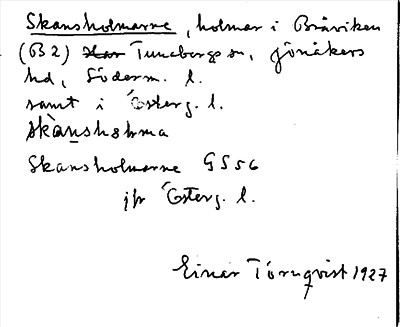 Skansholmarne, holmar i Bråviken
(B2) Tunabergs sn, Jönåkers
hd, Söderm. l.
samt i Österg. l.
Skansholmarne GS56
jfr Österg. l.
Einar Törnqvist 1927